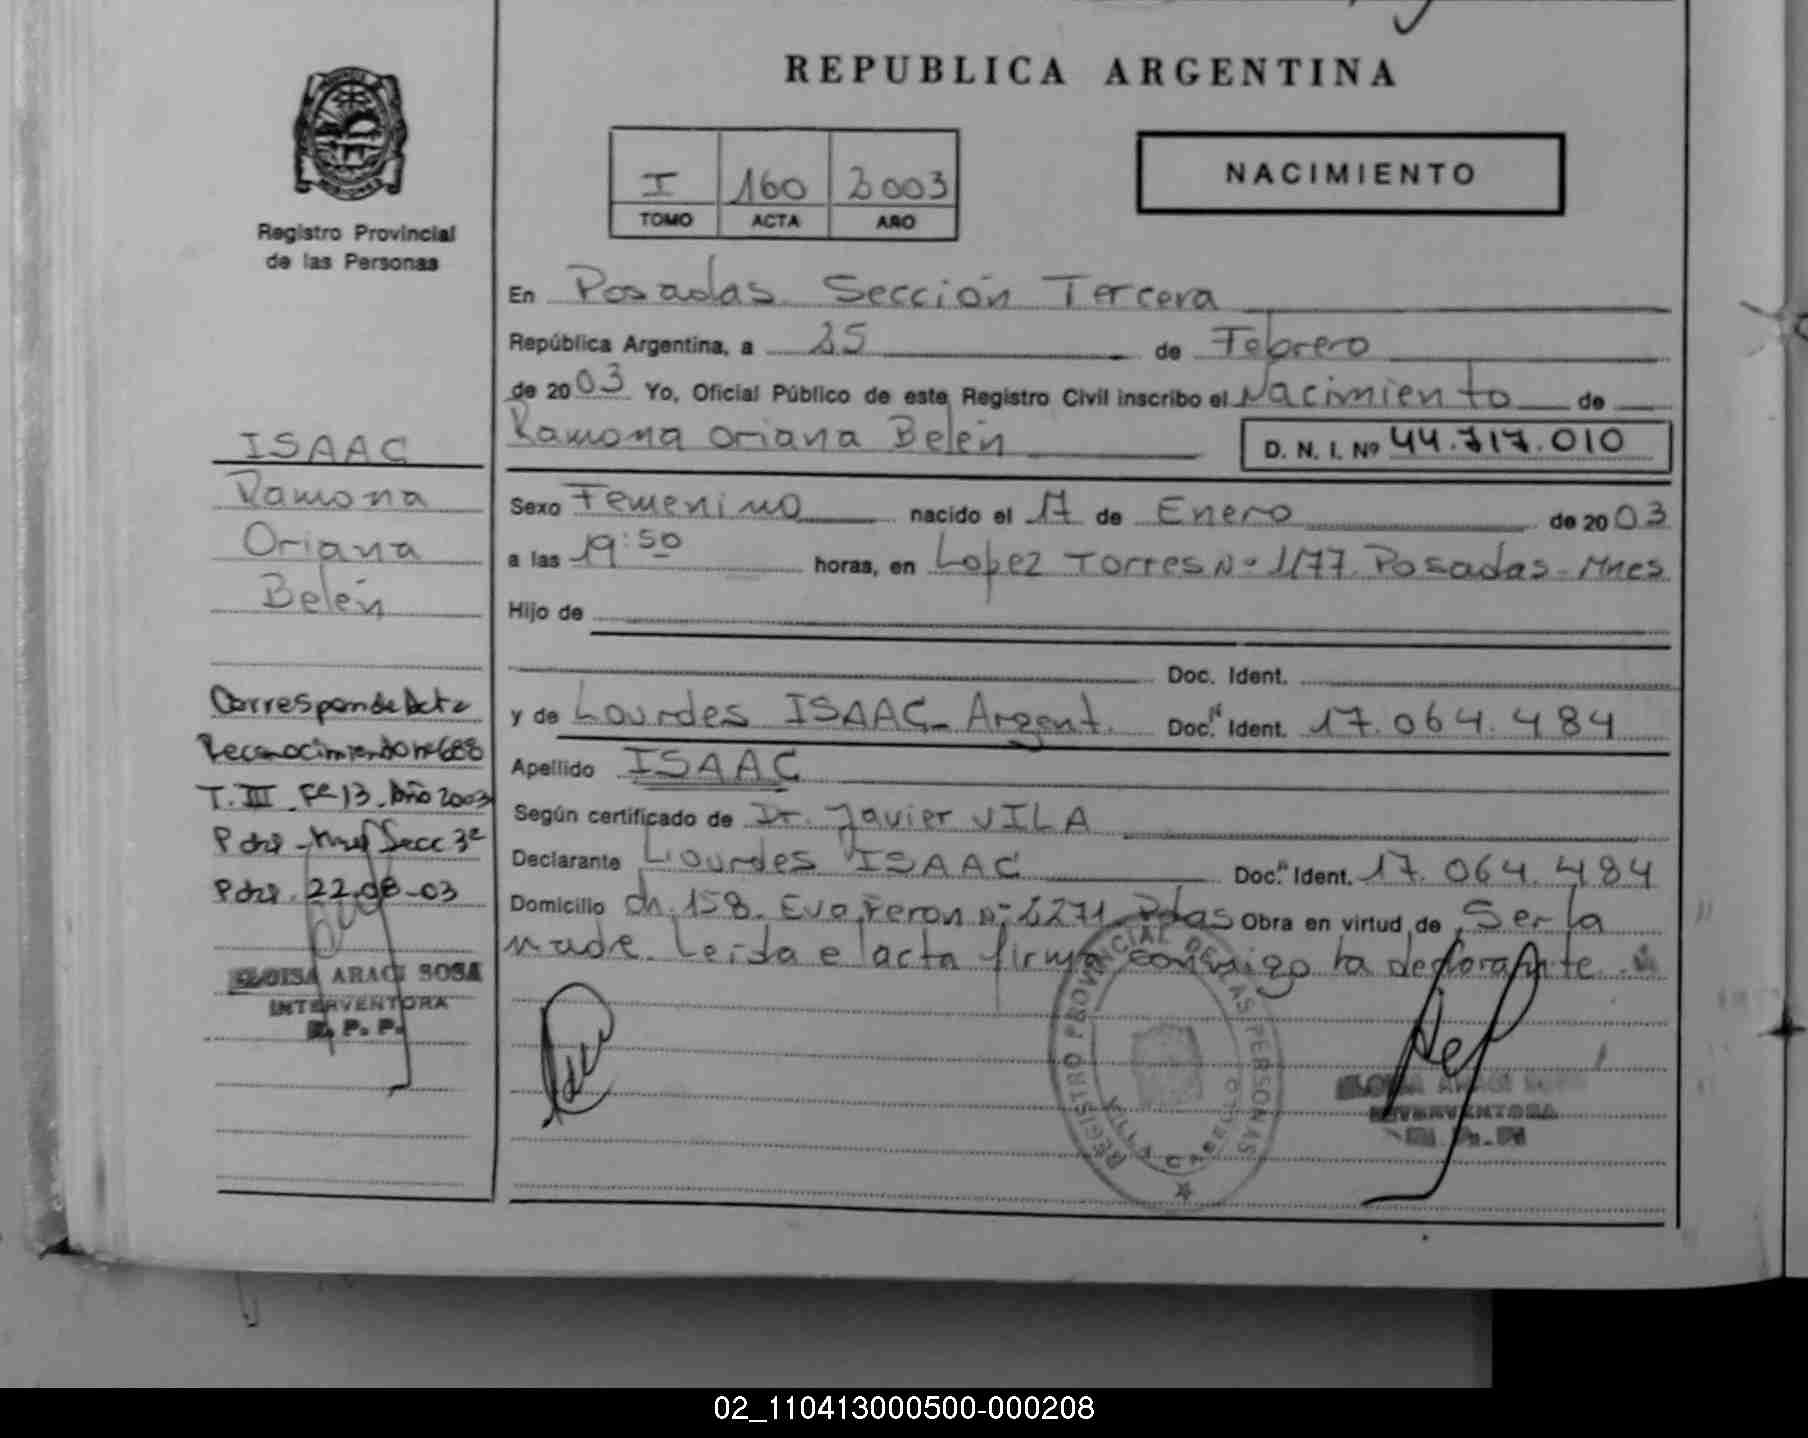 REPUBLICA ARGENTINA
I 160 2003
TOMO ACTA AÑO
NACIMIENTO
Registro Provincial
de las Personas
En Posadas Sección Tercera
República Argentina, a 25 de Febrero
de 2003 Yo, Oficial Público de este Registro Civil inscribo el Nacimiento de
Ramona Oriana Belén D. N. I. Nº 44.717.010
Sexo Femenino nacido el 17 de Enero de 2003
a las 19:50 horas, en Lopez Torres Nº 1177 Posadas - Mnes
Hijo de
Doc. Ident.
y de Lourdes ISAAC - Argent. Doc. Ident. 17.064.484
Apellido ISAAC
Según certificado de Dr. Javier VILA
Declarante Lourdes ISAAC Doc. Ident. 17.064.484
Domicilio ch. 158. Eva Peron Nº 2271 Pdas Obra en virtud de Ser la
madre. Leida el acta firma conmigo la declarante.
ISAAC
Ramona
Oriana
Belén
Corresponde Acta
Reconocimiento nº 688
T. III Fº 13 Año 2003
Pdas - Mnes Secc 3ª
Pdas. 22-08-03
ELOISA ARACI SOSA
INTERVENTORA
R. P. P.
REGISTRO PROVINCIAL DE LAS PERSONAS
VILLA CABELLO
ELOISA ARACI SOSA
INTERVENTORA
R. P. P.
02_110413000500-000208